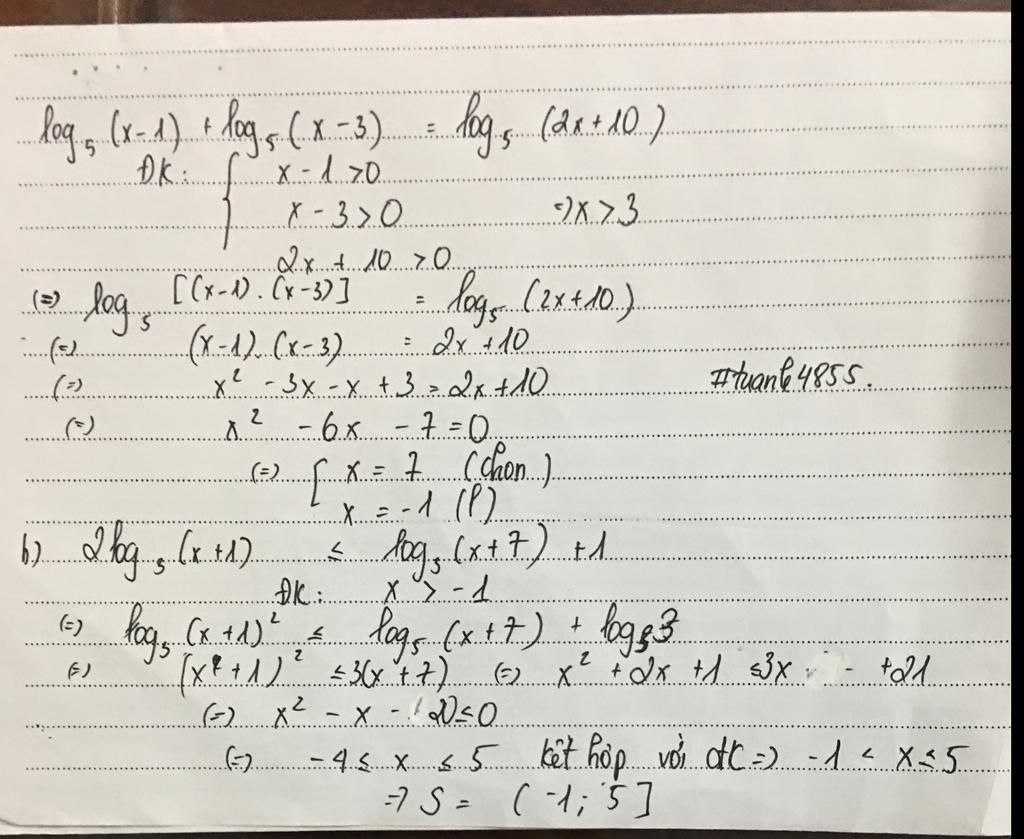 log₅ (x-1) + log₅ (x-3) = log₅ (2x+10)
ĐK: { x - 1 >0
x - 3 > 0 => x > 3
2x + 10 > 0
(=) log₅ [(x-1).(x-3)] = log₅ (2x+10)
(=) (x-1).(x-3) = 2x +10
(=) x² - 3x - x + 3 = 2x+10 #tuanh4855.
(=) x² - 6x - 7 = 0
(=) [ x = 7 (chọn)
x = -1 (l)
b) 2log₅ (x+1) ≤ log₅ (x+7) + 1
ĐK: x > -1
(=) log₃ (x+1)² ≤ log₅ (x+7) + log₃3
(=) (x+1)² ≤ 3(x+7) (=) x² + 2x + 1 ≤ 3x +21
(=) x² - x - 20 ≤ 0
(=) -4 ≤ x ≤ 5 kết hợp với đk => -1 < x ≤ 5
=> S = (-1; 5]